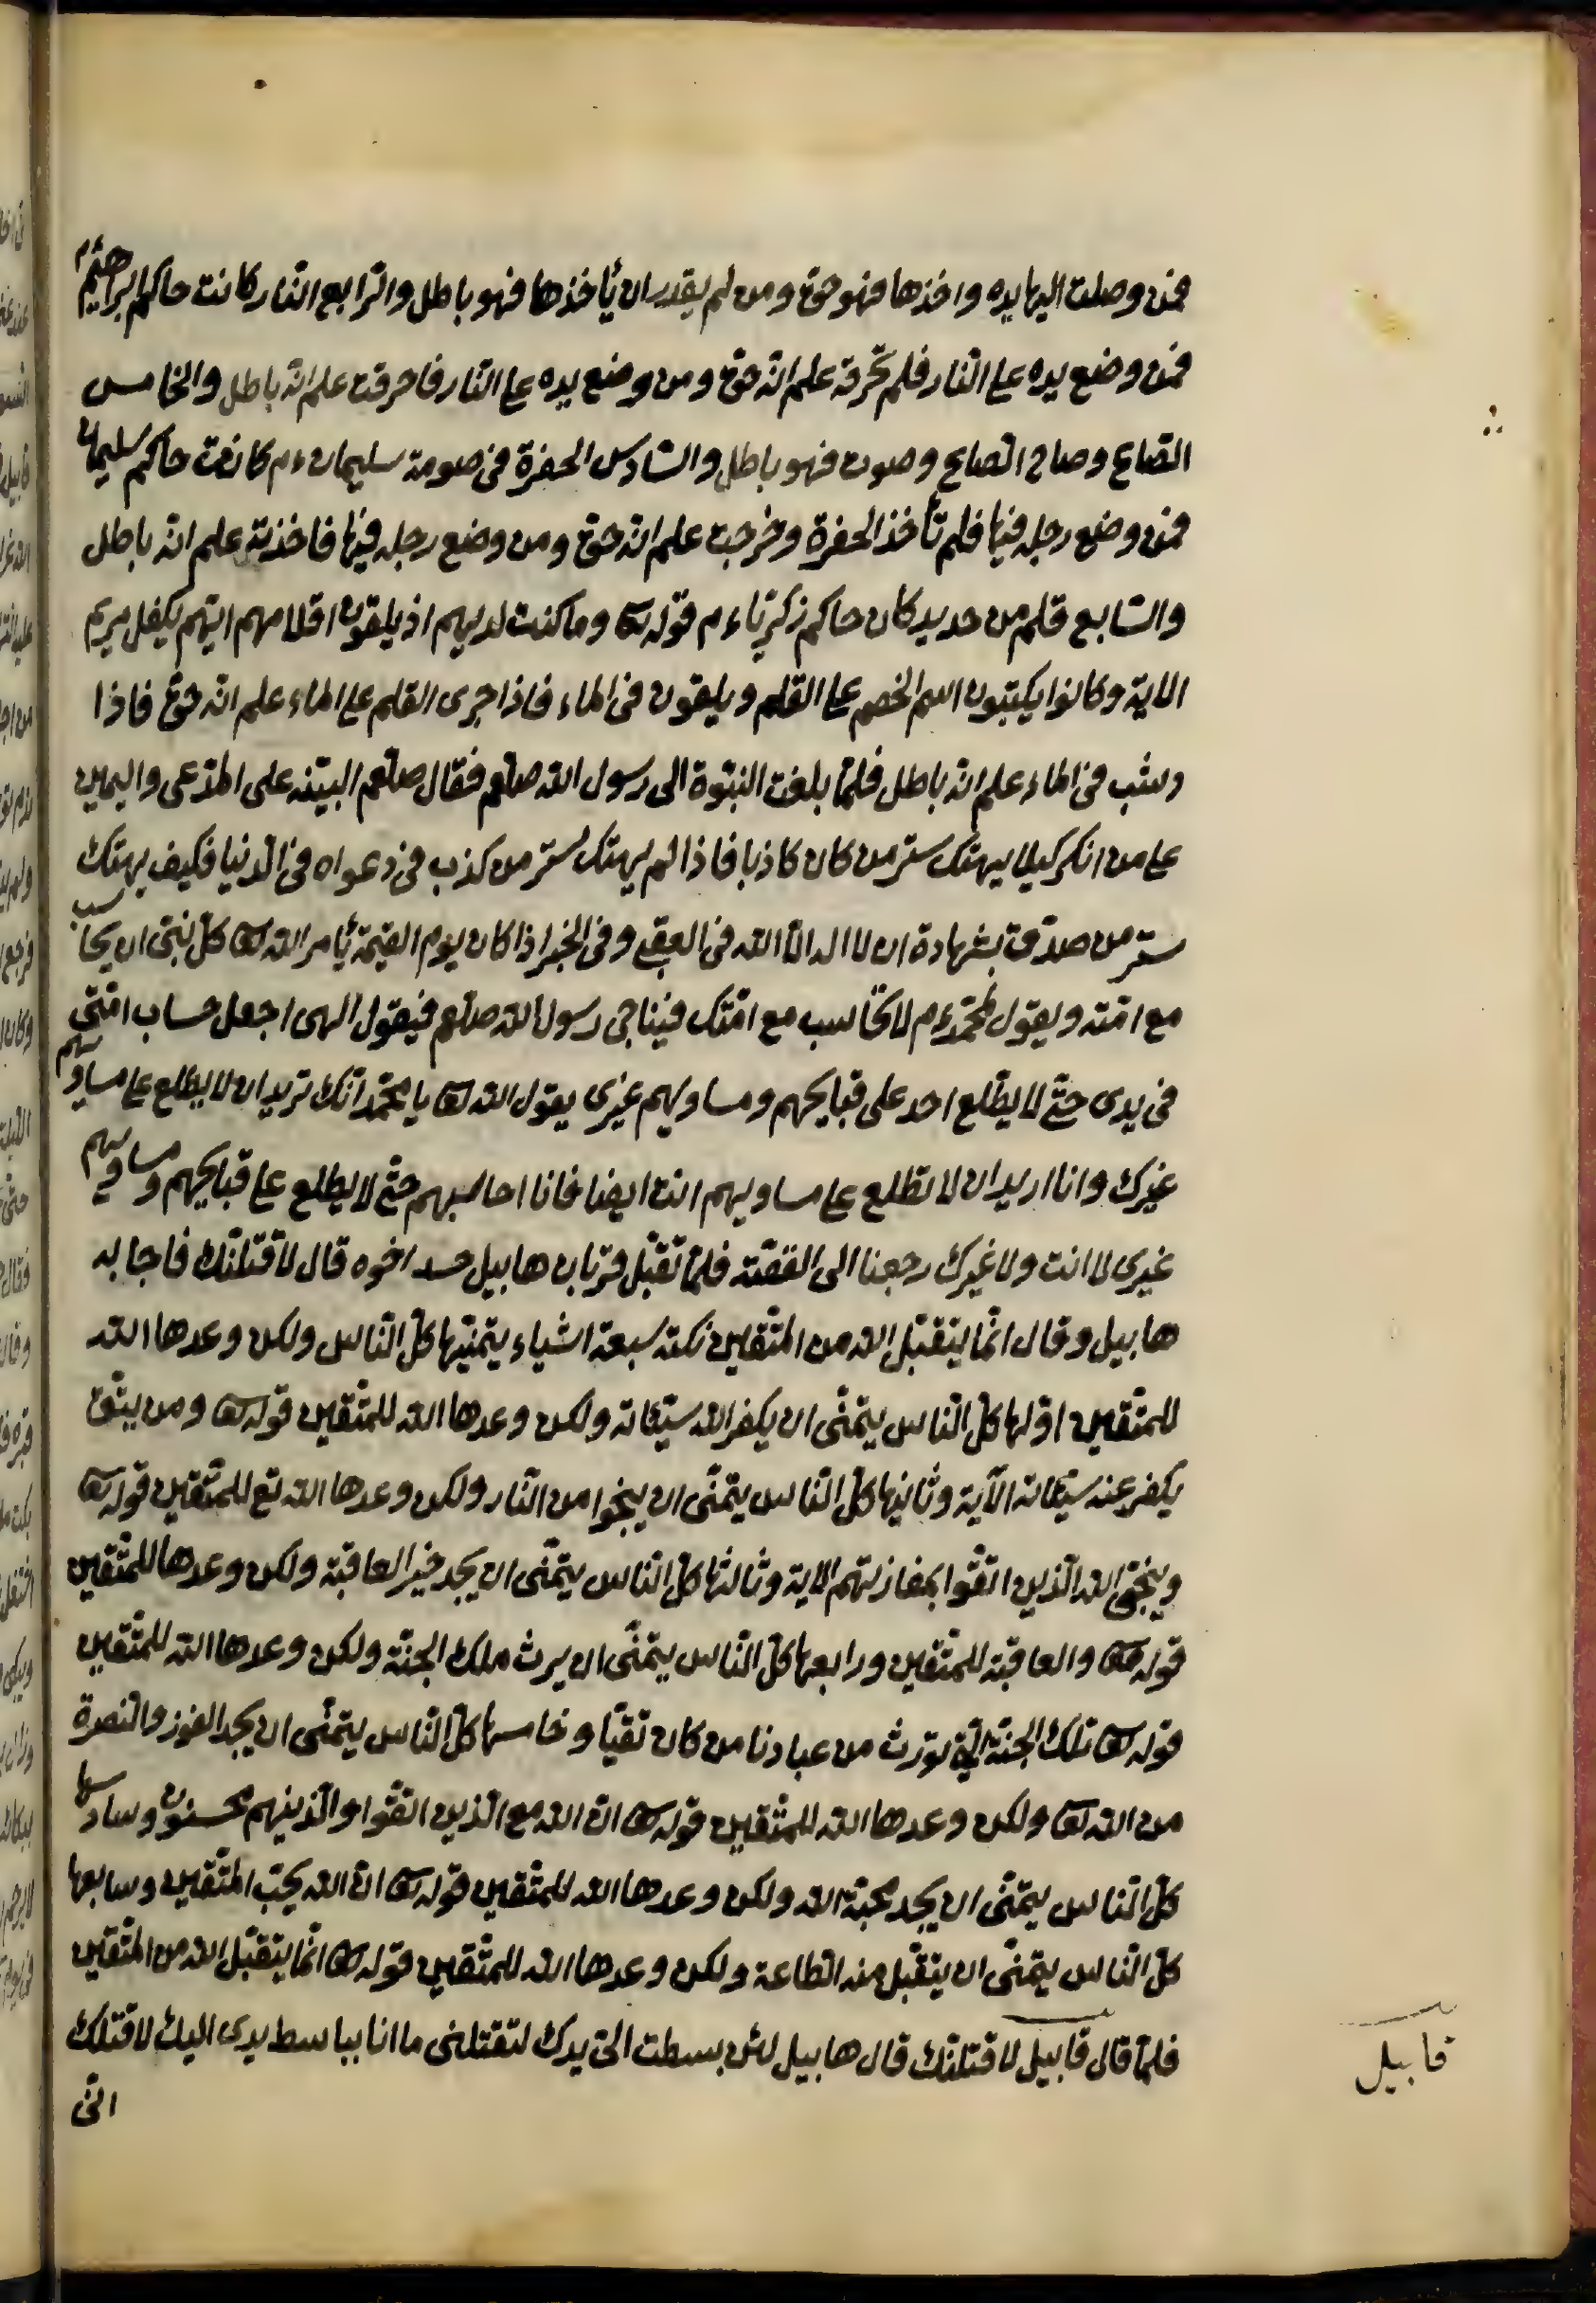 فمن وصلت اليها يده واخذها فهو حق ومن لم يقدر ان يأخذها فهو باطل والرّابع النّار كانت حاكم ابراهيم ءم
فمن وضع يده على النّار فلم تحرقه علم انّه حق ومن وضع يده على النّار فاحرقت علم انّه باطل والخامس
الصّاع وصاح الصّاع وصوت فهو باطل والسّادس الحفرة في صومعة سليمان ءم كانت حاكم سليمان
فمن وضع رجله فيها فلم تأخذ الحفرة وخرجت علم انّه حق ومن وضع رجله فيها فاخذته علم انّه باطل
والسّابع قلم من حديد كان حاكم زكريّا ءم قوله تعالى وما كنت لديهم اذ يلقون اقلامهم ايّهم يكفل مريم
الاية وكانوا يكتبون اسم الخصم على القلم ويلقون في الماء فاذا جرى القلم على الماء علم انّه حق فاذا
رسب في الماء علم انّه باطل فلمّا بلغت النبوّة الى رسول الله صلعم فقال صلعم البيّنة على المدّعى واليمين
على من انكر كيلا يهتك ستر من كان كاذبا فاذا لم يهتك ستر من كذب في دعواه في الدّنيا فكيف يهتك
ستر من صدّق بشهادة ان لا اله الّا الله في العقبى وفي الخبر اذا كان يوم القيمة يأمر الله تعالى كلّ نبيّ ان يحاسب
مع امّته ويقول لمحمّد ءم لا تحاسب مع امّتك فيناجى رسول الله صلعم فيقول الهى اجعل حساب امّتى
في يدى حتّى لا يطّلع احد على قبايحهم ومساويهم غيرى يقول الله تعالى يا محمّد انّك تريد ان لا يطّلع على مساويهم
غيرك وانا اريد ان لا تطّلع على مساويهم انت ايضا فانا احاسبهم حتّى لا يطلع على قبايحهم ومساويهم
غيرى لا انت ولا غيرك رجعنا الى القصّة فلمّا تقبّل قربان هابيل حسد اخوه قال لاقتلنّك فاجابه
هابيل وقال انّما يتقبّل الله من المتّقين نكتة سبعة اشياء يتمنّيها كلّ النّاس ولكن وعدها الله
للمتّقين اوّلها كلّ النّاس يتمنّى ان يكفر الله سيّئاته ولكن وعدها الله للمتّقين قوله تعالى ومن يتّق
يكفر عنه سيّئاته الآية وثانيها كلّ النّاس يتمنّى ان ينجوا من النّار ولكن وعدها الله تع للمتّقين قوله تعالى
وينجّى الله الّذين اتّقوا بمفازتهم الاية وثالثها كلّ النّاس يتمنّى ان يجد خير العاقبة ولكن وعدها للمتّقين
قوله تعالى والعاقبة للمتّقين ورابعها كلّ النّاس يتمنّى ان يرث ملك الجنّة ولكن وعدها الله للمتّقين
قوله تعالى تلك الجنّة الّتي نورث من عبادنا من كان تقيّا وخامسها كلّ النّاس يتمنّى ان يجد الفوز والنصرة
من الله تعالى ولكن وعدها الله للمتّقين قوله تعالى انّ الله مع الّذين اتّقوا والّذينهم محسنون وسادسها
كلّ النّاس يتمنّى ان يجد محبّة الله ولكن وعدها الله للمتّقين قوله تعالى انّ الله يحبّ المتّقين وسابعها
كلّ النّاس يتمنّى ان يتقبّل منه الطّاعة ولكن وعدها الله للمتّقين قوله تعالى انّما يتقبّل الله من المتّقين
فلمّا قال قابيل لاقتلنّك قال هابيل لئن بسطت الىّ يدك لتقتلنى ما انا بباسط يدى اليك لاقتلك
انّى
قابيل